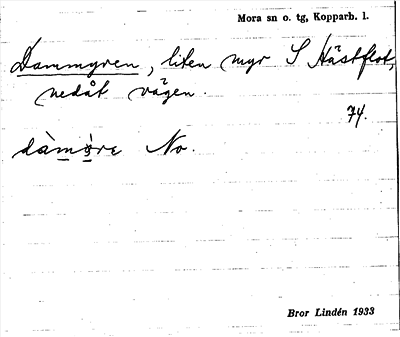 Mora sn o. tg, Kopparb. l.
Dammyren, liten myr S Hästflot,
nedåt vägen.
74.
No.
Bror Lindén 1933